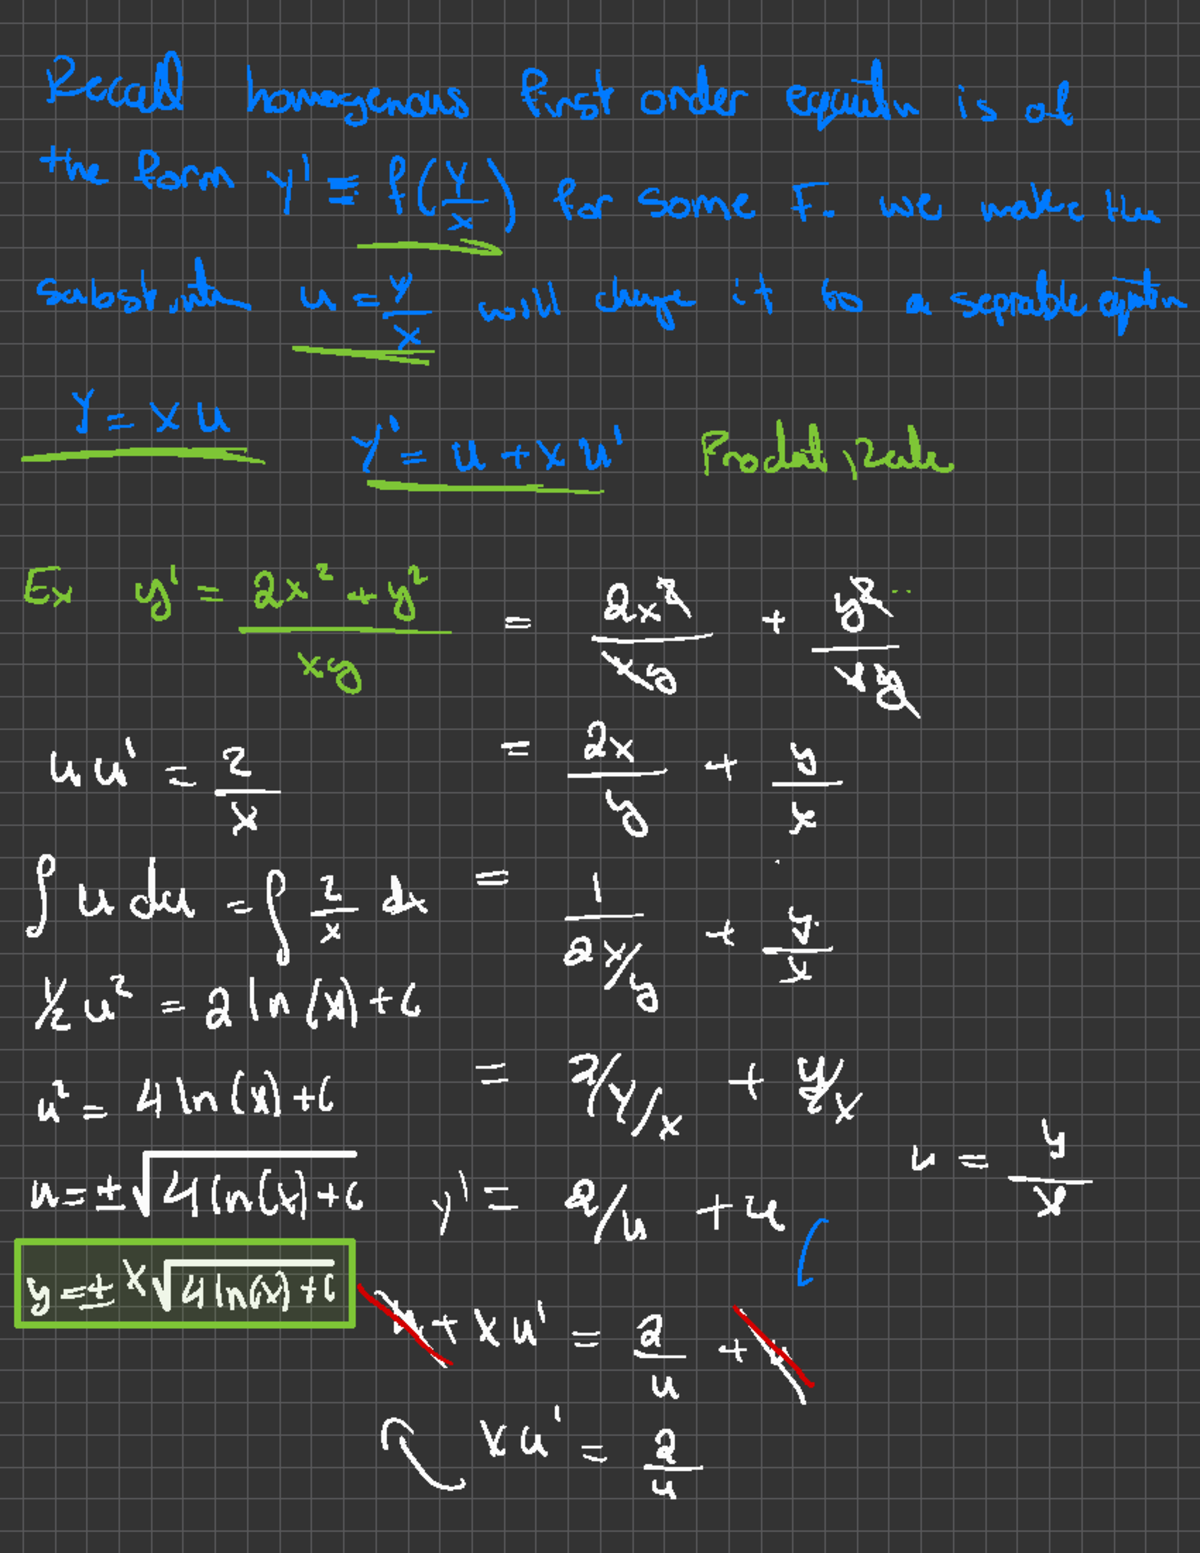 Recall homogenous first order equatin is of
the form y' = f(y/x) for some F. we make the
substitutn u = y/x will change it to a seprable eqatin
Y = x u    Y' = u + x u'    Product Rule
Ex y' = (2x² + y²)/(xy) = 2x²/(xy) + y²/(xy)
= 2x/y + y/x
= 1/(2x/y) + y/x
= 2/y/x + y/x
u = y/x
y' = 2/u + u
u + x u' = 2/u + u
x u' = 2/u
u u' = 2/x
∫ u du = ∫ 2/x dx
½ u² = 2 ln(x) + C
u² = 4 ln(x) + C
u = ±√(4 ln(x) + C)
y = ± x √(4 ln(x) + C)